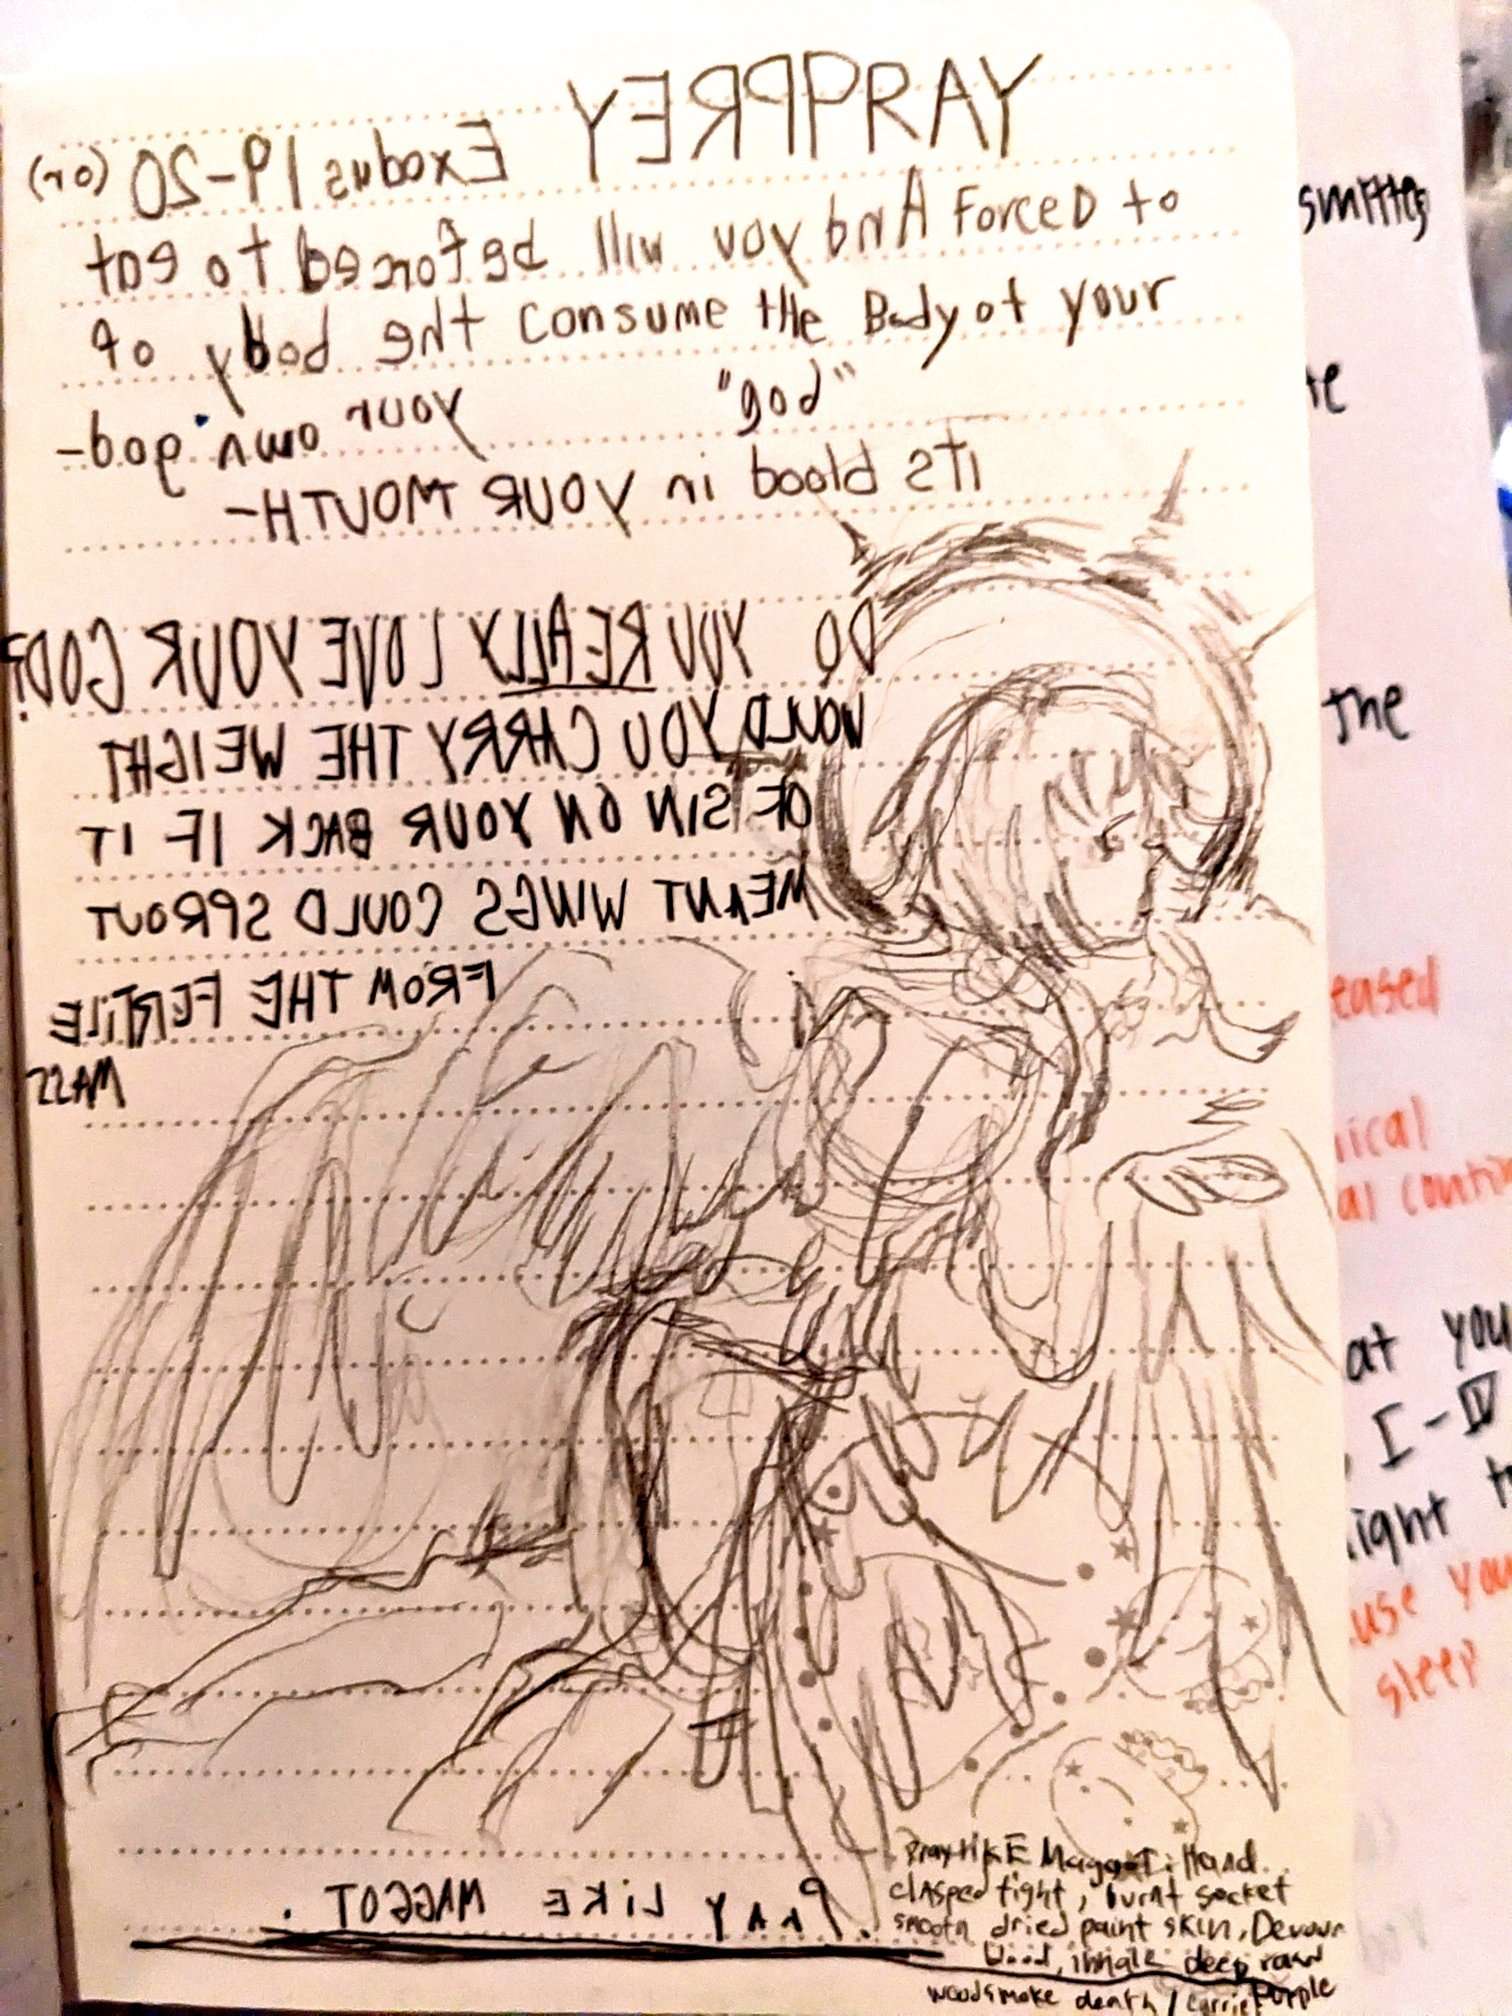 PREYPRAY
Exodus 19-20 (or)
And you will be forced to eat Forced to
the body of consume the Body of your
your own god- "god"
its blood in YOUR MOUTH-
DO YOU REALLY LOVE YOUR GOD?
WOULD YOU CARRY THE WEIGHT
OF SIN ON YOUR BACK IF IT
MEANT WINGS COULD SPROUT
FROM THE FERTILE
MASS
PRAY LIKE MAGGOT.
Pray likE Maggot: Hand
clasped tight, burnt socket
smooth dried paint skin, Devour
blood, inhale deep raw
woodsmoke death / Carrie Purple
the
eased
ical
at you
I-IV
ight
use you
sleep